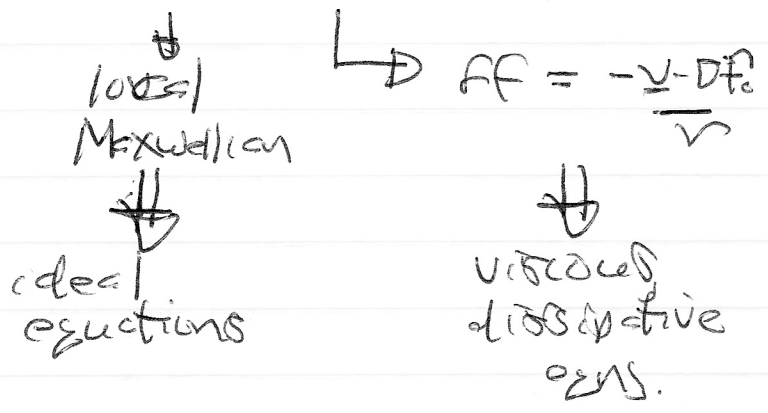 local
Maxwellian
δf = -v·∇f₀
ν
ideal
equations
viscous,
dissipative
eqns.